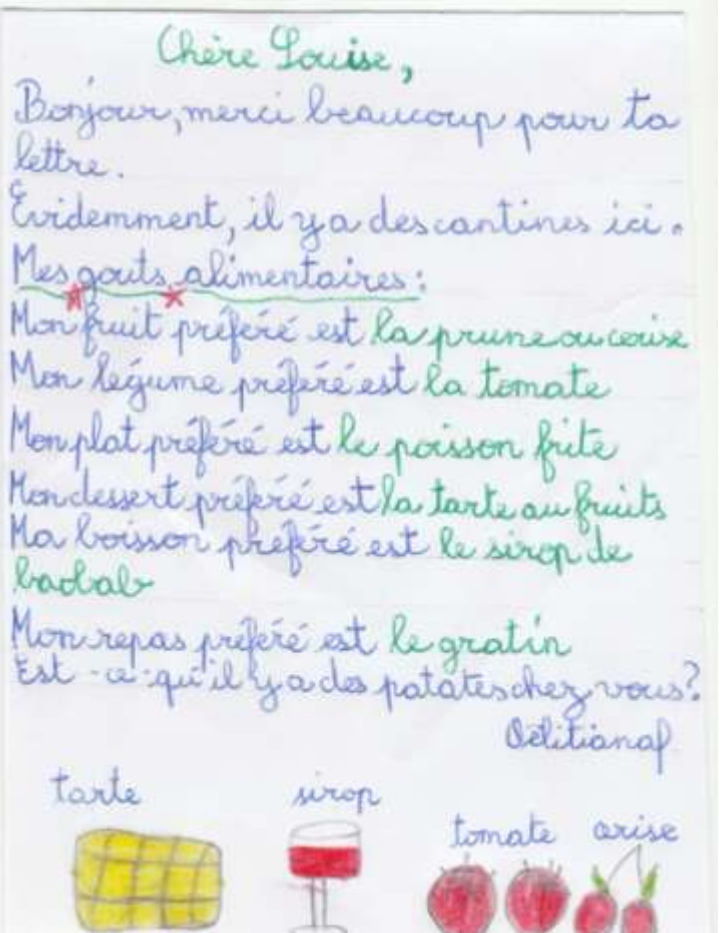 Chère Louise,
Bonjour, merci beaucoup pour ta
lettre.
Évidemment, il y a des cantines ici.
Mes gouts alimentaires :
Mon fruit préféré est la prune ou cerise
Mon légume préféré est la tomate
Mon plat préféré est le poisson frite
Mon dessert préféré est la tarte au fruits
Ma boisson préféré est le sirop de
baobab
Mon repas préféré est le gratin
Est-ce-qu'il y a des patates chez vous?
tarte
sirop
tomate
cerise